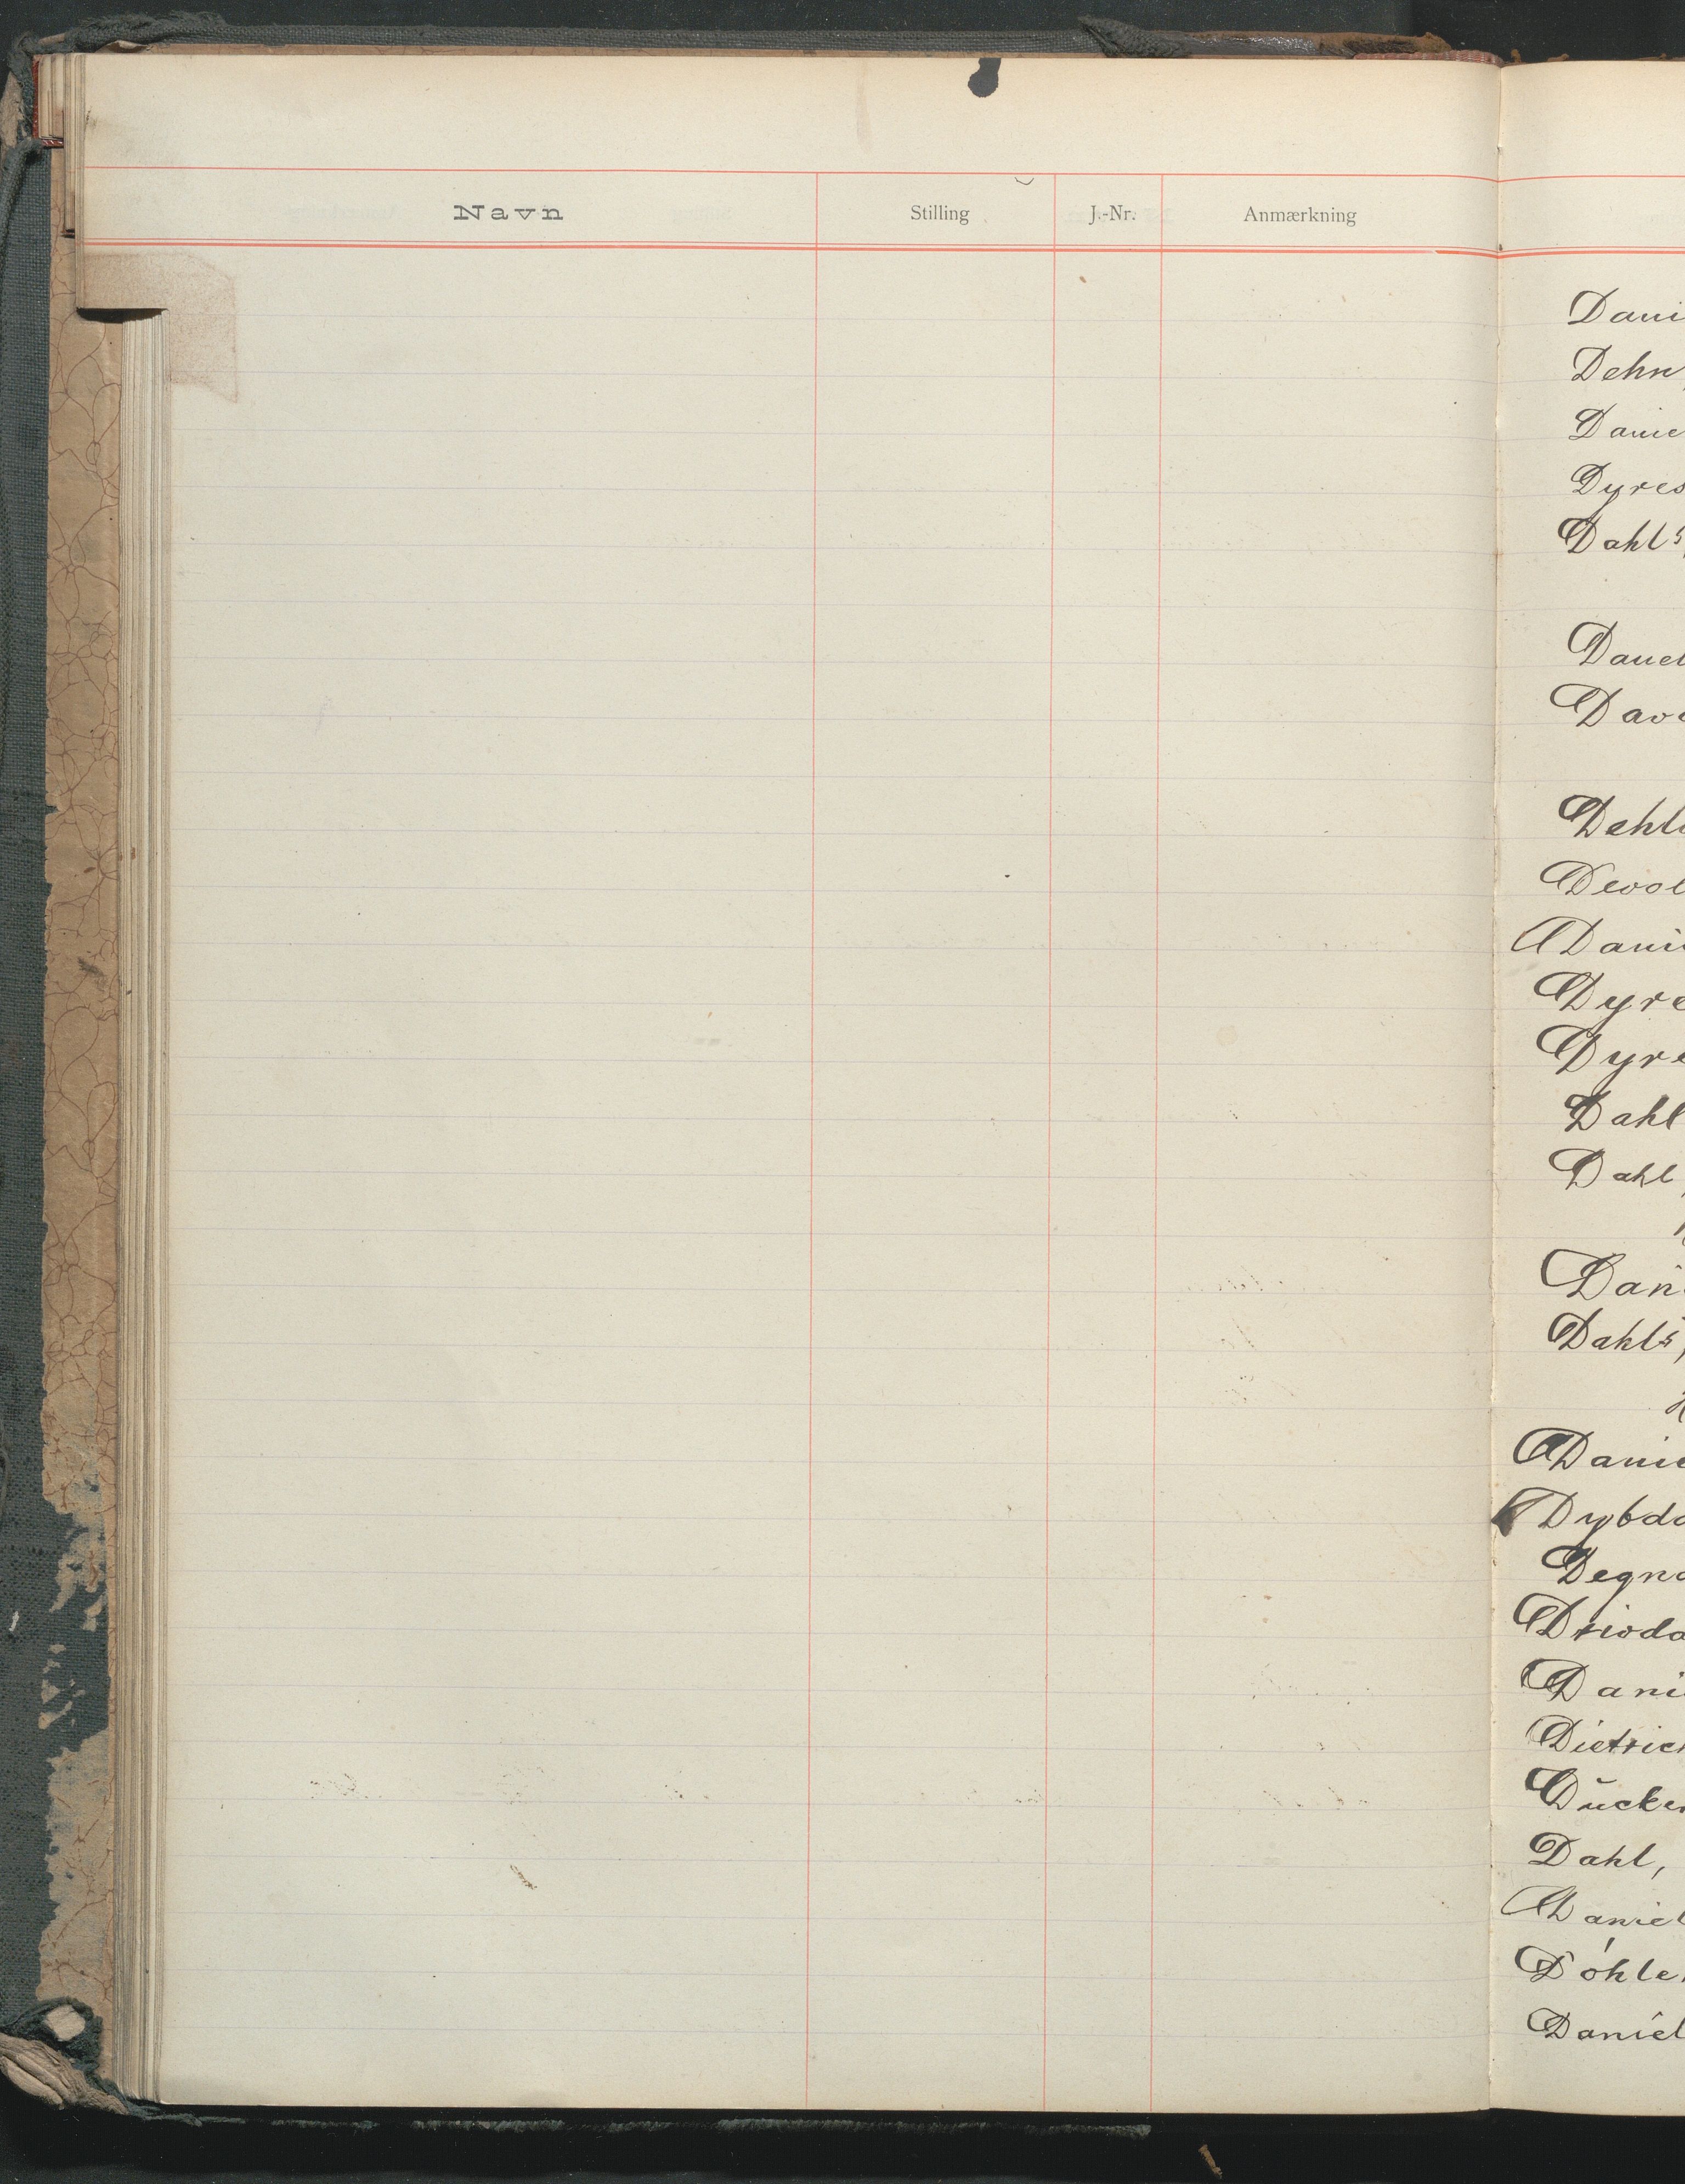 Navn Stilling J.-Nr. Anmærkning
Dani
Dehn
Danie
Dyres
Dahls
Danel
Dav
Dehl
Devol
Dani
Dyre
Dyre
Dahl
Dahl,
Dani
Dahls,
Danie
Dybda
Degna
Drivda
Dani
Dietrich
Dücker
Dahl,
Daniel
Döhler
Daniel